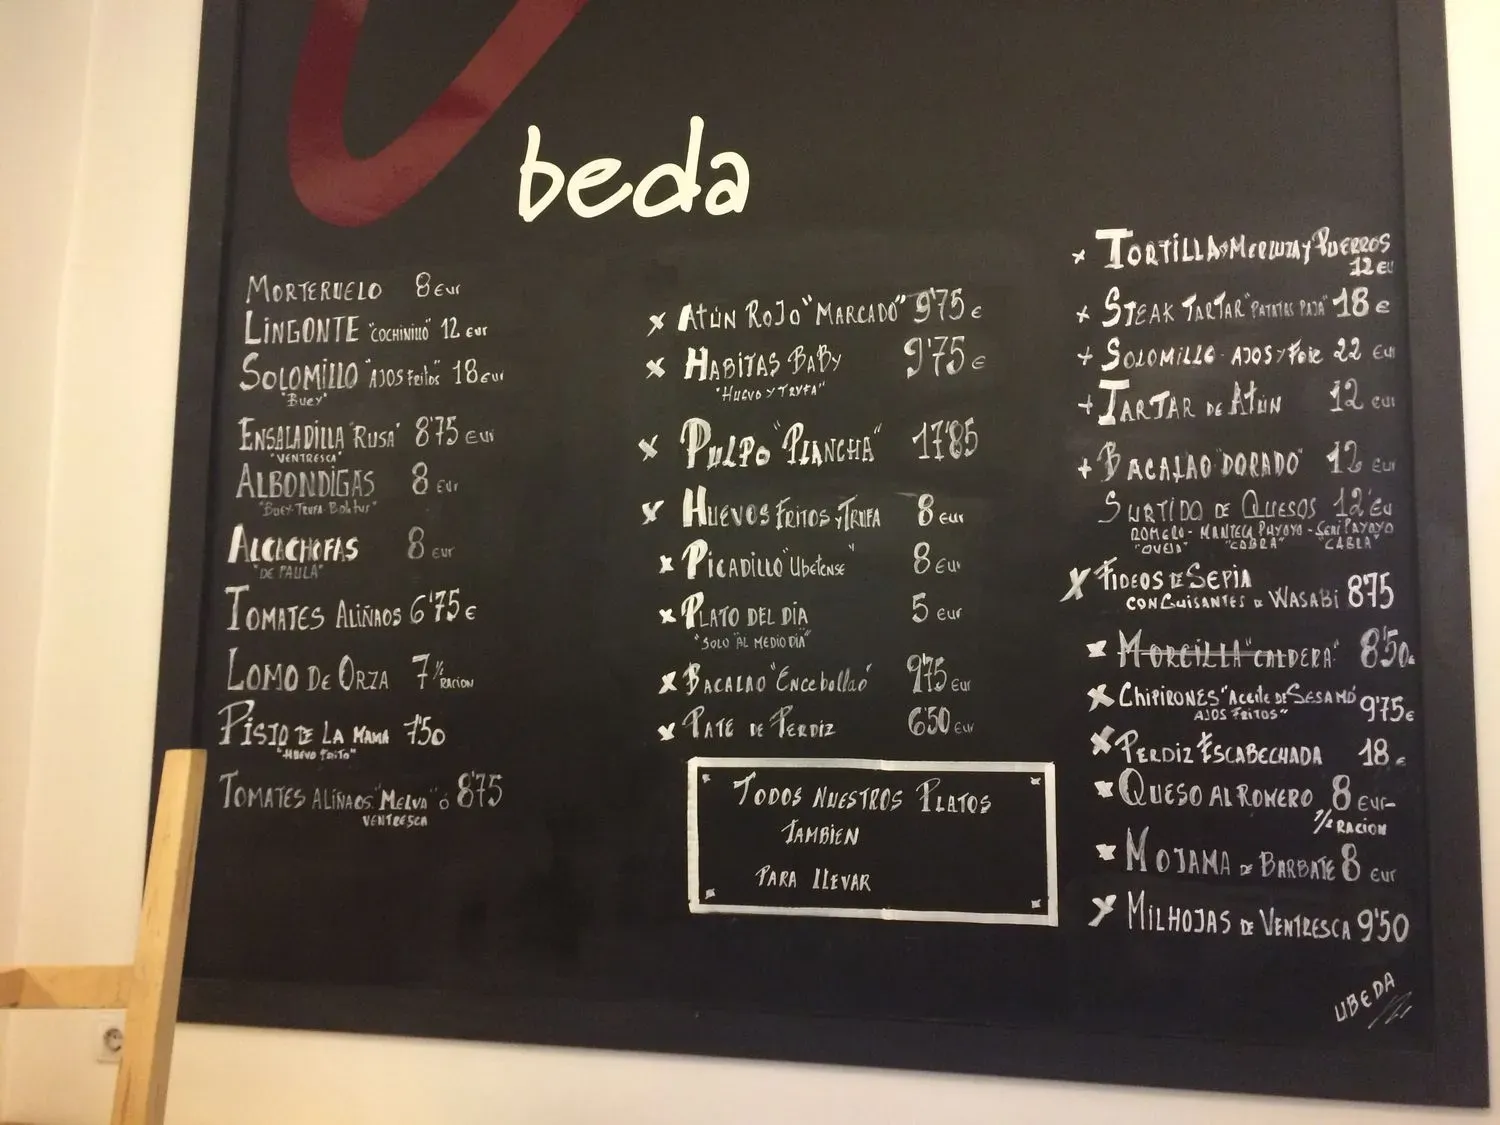 beda
MORTERUELO 8 Eur
LINGONTE "COCHINILLO" 12 Eur
SOLOMILLO "AJOS FRITOS" 18 Eur
"BUEY"
ENSALADILLA "RUSA" 8'75 Eur
"VENTRESCA"
ALBONDIGAS 8 Eur
"BUEY-TRUFA-Boletus"
ALCACHOFAS 8 Eur
"DE PAULA"
TOMATES ALIÑAOS 6'75 €
LOMO DE ORZA 7 ½ RACION
PISTO DE LA MAMA 7'50
"HUEVO FRITO"
TOMATES ALIÑAOS "MELVA" ó 8'75
VENTRESCA
x ATÚN ROJO "MARCADO" 9'75 €
x HABITAS BABY 9'75 €
"HUEVO Y TRUFA"
x PULPO "PLANCHA" 17'85
x HUEVOS FRITOS y TRUFA 8 Eur
x PICADILLO "Ubetense" 8 Eur
x PLATO DEL DÍA 5 Eur
"SOLO "AL MEDIO DIA"
x BACALAO "Encebollao" 9'75 Eur
x PATE DE PERDIZ 6'50 Eur
TODOS NUESTROS PLATOS
TAMBIEN
PARA LLEVAR
x TORTILLA MERLUZA Y PUERROS
12 Eu
x STEAK TARTAR "PATATAS PAJA" 18 €
+ SOLOMILLO - AJOS Y FOIE 22 Eur
+ TARTAR DE ATÚN 12 Eur
+ BACALAO "DORADO" 12 Eur
SURTIDO DE QUESOS 12 Eu
ROMERO - MANTECA PAYOYO - SEMI PAYOYO
"OVEJA" "CABRA" "CABRA"
x FIDEOS DE SEPIA
CON GUISANTES DE WASABI 8'75
x MORCILLA "CALDERA" 8'50€
x CHIPIRONES "Aceite DE SESAMO
AJOS FRITOS" 9'75€
x PERDIZ ESCABECHADA 18 €
x QUESO AL ROMERO 8 Eur-
½ RACION
x MOJAMA DE BARBATE 8 Eur
x MILHOJAS DE VENTRESCA 9'50
UBEDA